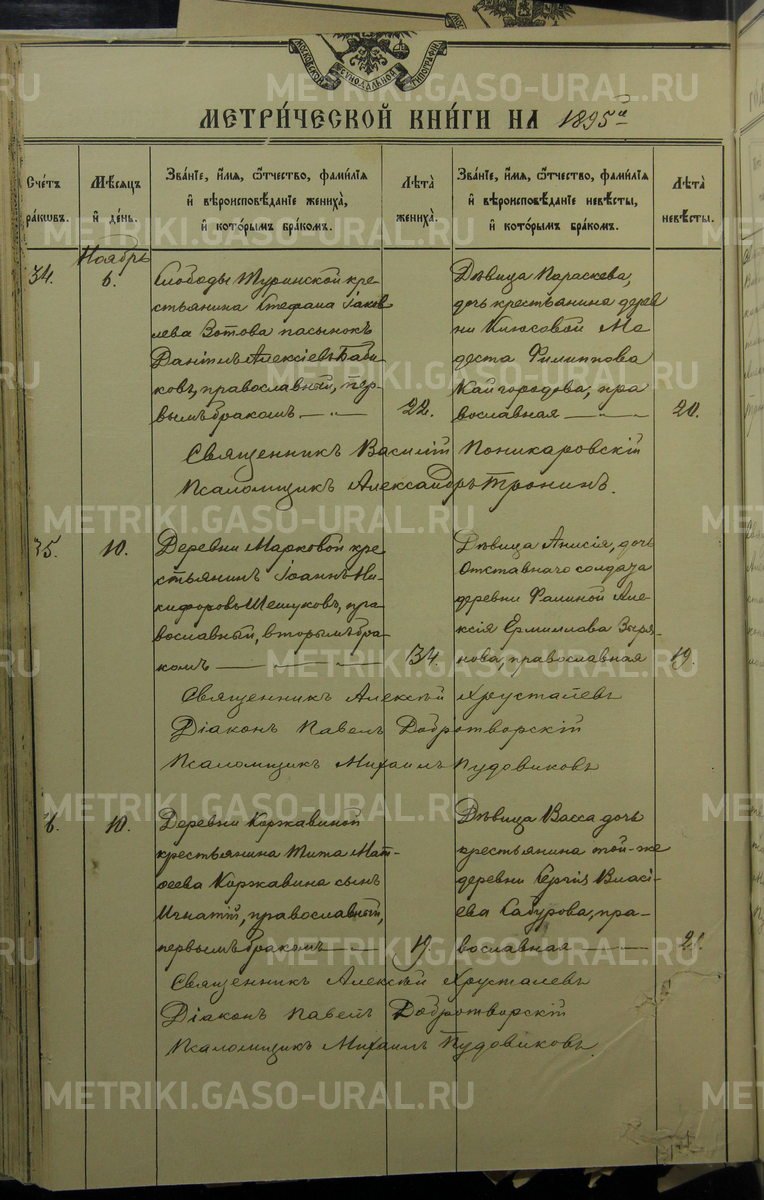 МОСКОВСКОЙ СѴНОДАЛЬНОЙ ТИПОГРАФІИ
METRIKI.GASO-URAL.RU
МЕТРИ́ЧЕСКОЙ КНИ́ГИ НА 1895й
Сче́тъ браковъ.
Мѣсяцъ и҆ де́нь.
Зва́нїе, и҆́мя, ѻ҆́тчество, фами́лїя и҆ вѣроисповѣ́данїе жениха̀, и҆ кото́рымъ бра́комъ.
Лѣ́та жениха̀.
Зва́нїе, и҆́мя, ѻ҆́тчество, фами́лїя и҆ вѣроисповѣ́данїе невѣ́сты, и҆ кото́рымъ бра́комъ.
Лѣ́та невѣ́сты.
Ноябрь
34.
6.
Слободы Туринской кре
стьянина Стефана Іаков
лева Зотова пасынокъ
Даніилъ Алексіевъ Баби
ковъ, православный, пер
вымъ бракомъ
22.
Дѣвица Параскева,
дочь крестьянина дерев
ни Кипосовой Мо
деста Филиппова
Кайгородова, пра
вославная
20.
Священникъ Василій Поникаровскій
Псаломщикъ Александръ Тронинъ.
35.
10.
Деревни Марковой кре
стьянинъ Іоаннъ Ни
кифоровъ Шешуковъ, пра
вославный, вторымъ бра
комъ
34.
Дѣвица Анисія, дочь
отставнаго солдата
деревни Фалиной Але
ксія Ермиллова Зыря
нова, православная
19.
Священникъ Алексѣй Хрусталевъ
Діаконъ Павелъ Добротворскій
Псаломщикъ Михаилъ Пудовиковъ
6.
10.
Деревни Коржавиной
крестьянина Тита Мат-
ѳеева Коржавина сынъ
Игнатій, православный,
первымъ бракомъ
19.
Дѣвица Васса дочь
крестьянина той-же
деревни Сергія Власі-
ева Сабурова, пра-
вославная
21.
Священникъ Алексѣй Хрусталевъ
Діаконъ Павелъ Добротворскій
Псаломщикъ Михаилъ Пудовиковъ.